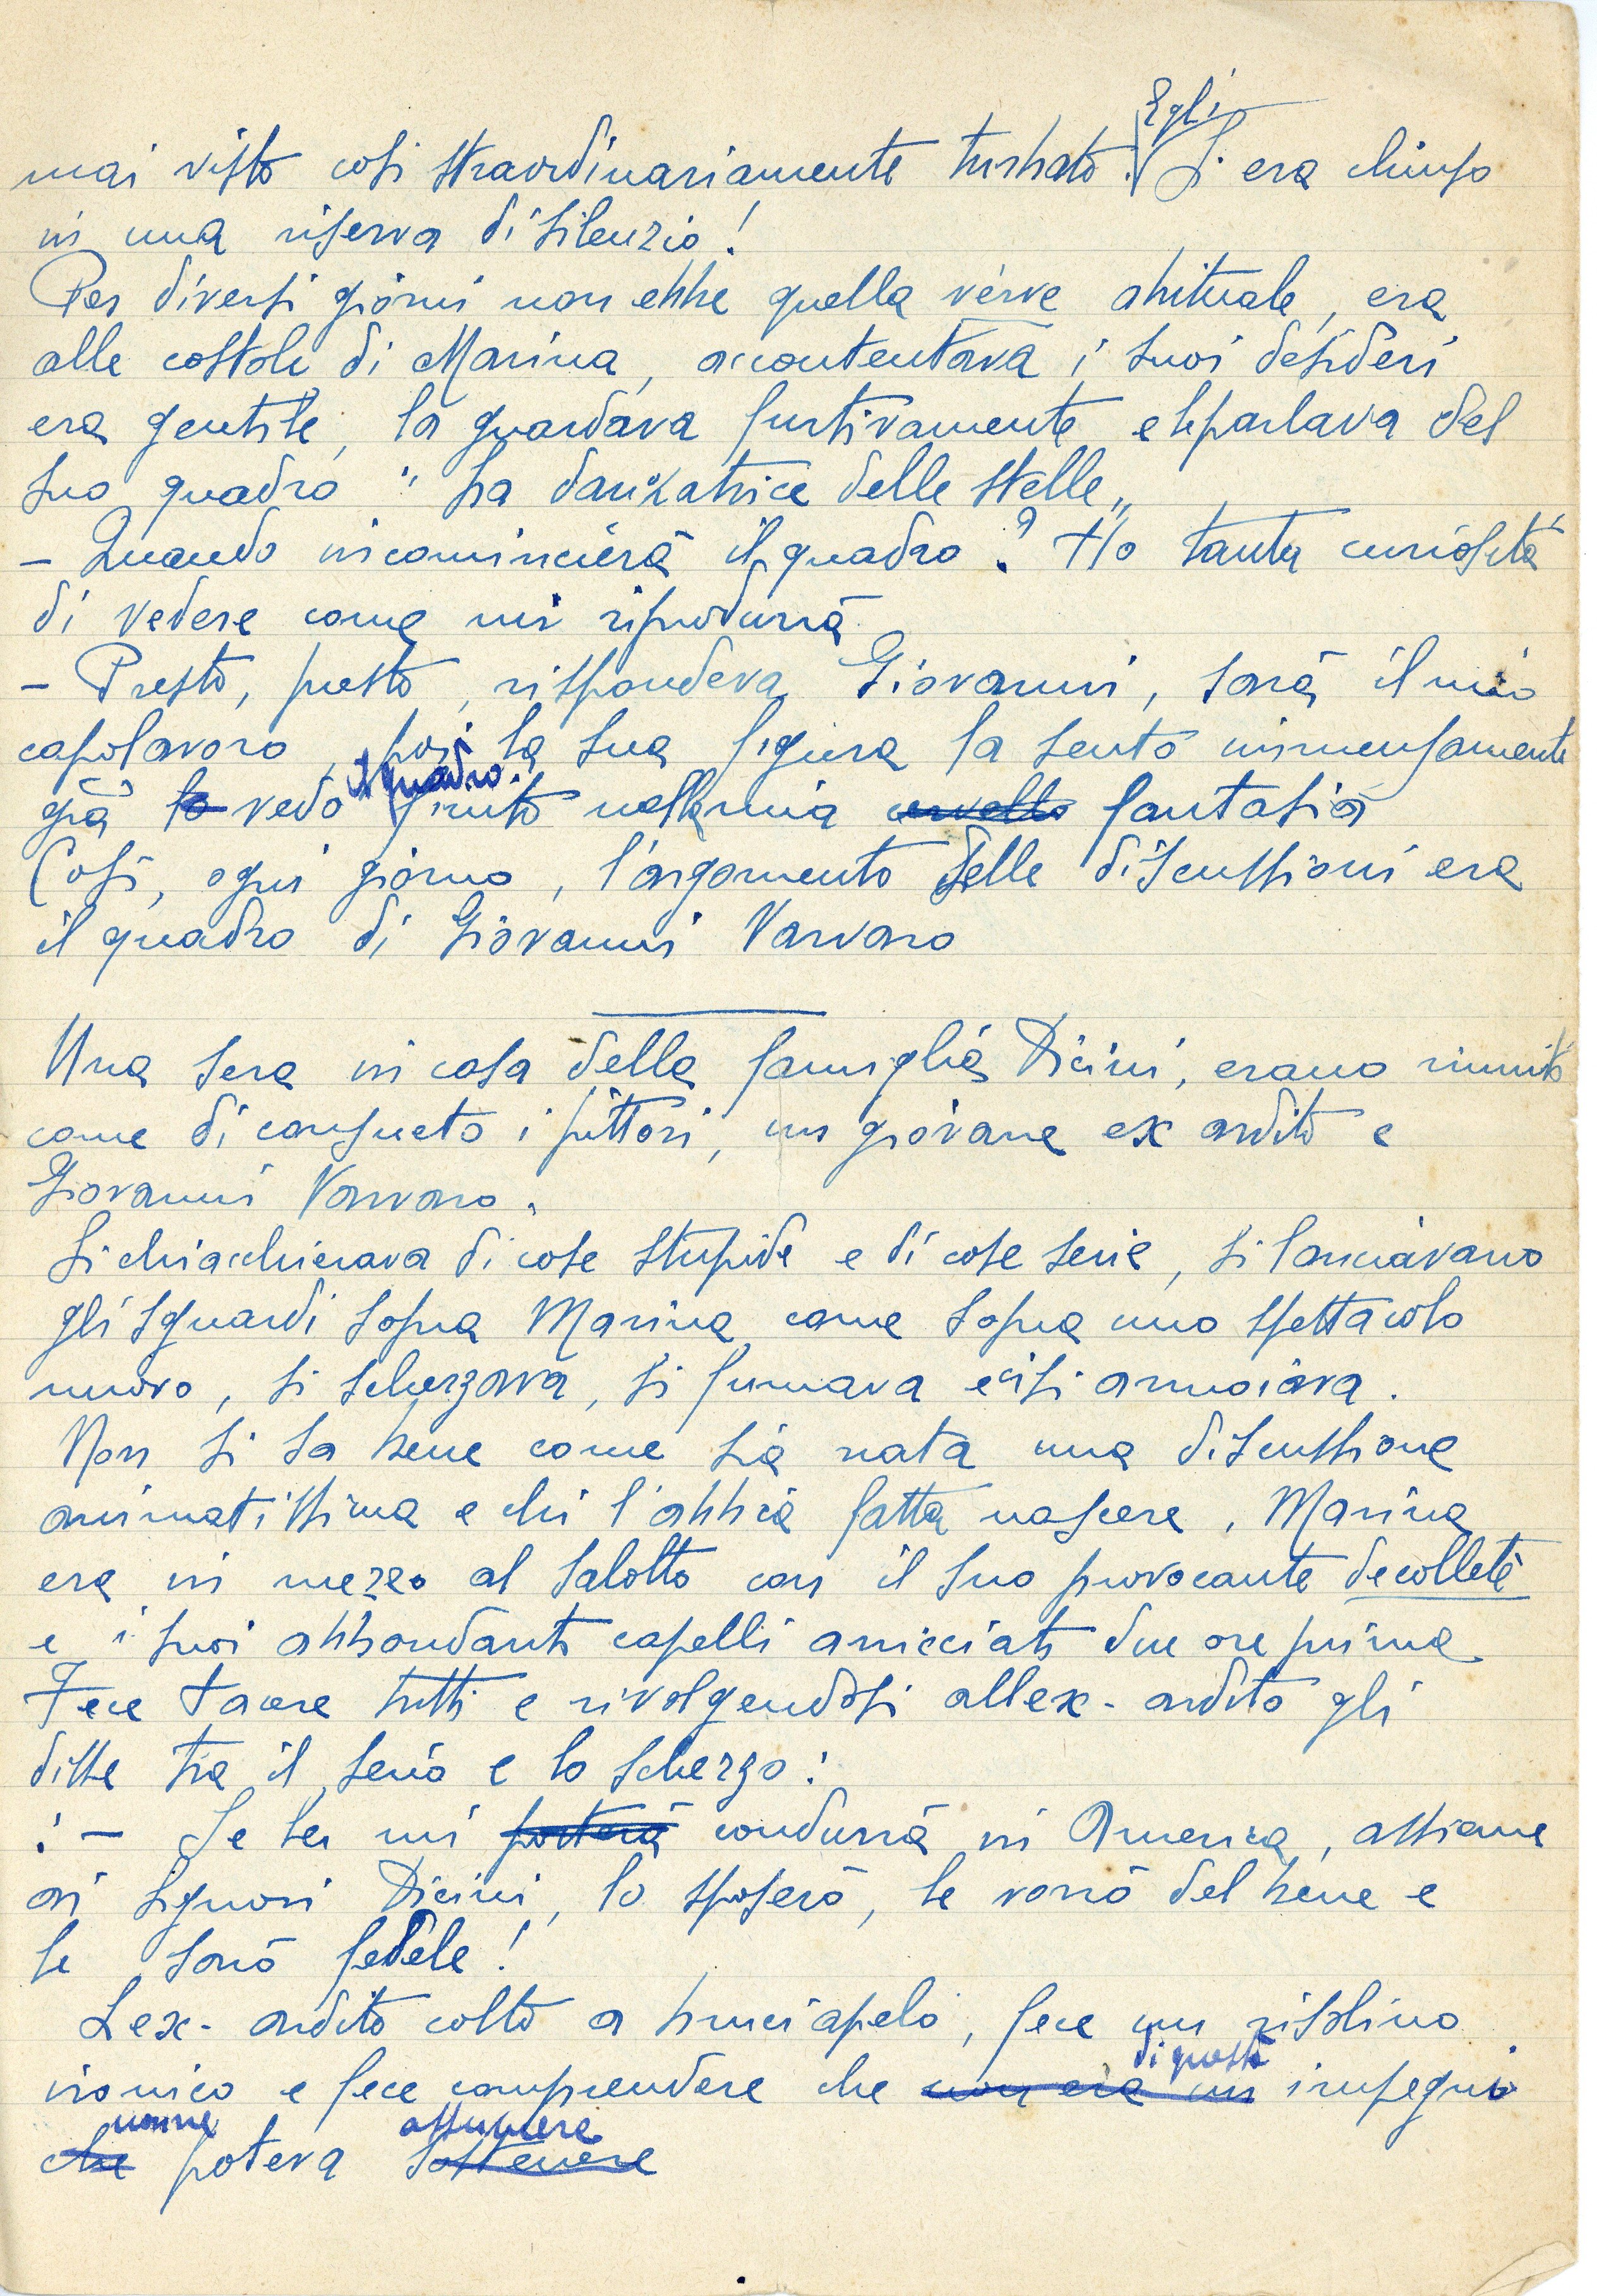 Egli
mai visto così straordinariamente turbato. Si era chiuso
in una riserva di silenzio!
Per diversi giorni non ebbe quella vèrve abituale, era
alle costole di Marina, accontentava i suoi desideri
era gentile, la guardava furtivamente e le parlava del
suo quadro "La danzatrice delle stelle„
- Quando incomincierà il quadro? Ho tanta curiosità
di vedere come mi riprodurrà
- Presto, presto, rispondeva Giovanni, sarà il mio
capolavoro, poi la sua figura la sento immensamente
il quadro
già lo vedo finito nella mia cervello fantasia
Così, ogni giorno, l'argomento delle discussioni era
il quadro di Giovanni Varvaro
Una sera in casa della famiglia Dicini, erano riuniti
come di consueto i pittori, un giovane ex ardito e
Giovanni Varvaro.
Si chiacchierava di cose stupide e di cose serie, si lanciavano
gli sguardi sopra Marina come sopra uno spettacolo
nuovo, si scherzava, si fumava e ci si annoiava.
Non si sa bene come sia nata una discussione
animatissima e chi l'abbia fatta nascere. Marina
era in mezzo al salotto con il suo provocante decolletè
e i suoi abbondanti capelli arricciati due ore prima
Fece tacere tutti e rivolgendosi all ex-ardito gli
disse tra il serio e lo scherzo:
: - Se lei mi porterà condurrà in America, assieme
ai signori Dicini, lo sposerò, le vorrò del bene e
le sarò fedele!
L ex-ardito colto a bruciapelo, fece un risolino
di questo
ironico e fece comprendere che non era un impegno
non ne assumere
che poteva sostenere